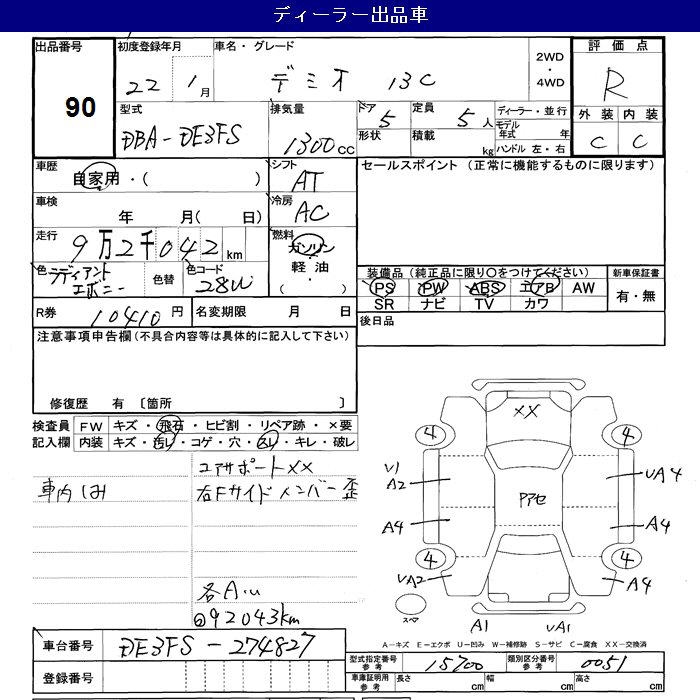 ディーラー出品車
出品番号
90
初度登録年月
22 1月
車名・グレード
デミオ 13C
2WD
・
4WD
評価点
R
外装 内装
C C
型式
DBA-DE3FS
排気量
1300cc
ドア 5
形状
定員 5人
積載 kg
ディーラー・並行
モデル年式 年
ハンドル 左・右
車歴
自家用・( )
シフト
AT
セールスポイント (正常に機能するものに限ります)
車検
年 月( 日)
冷房
AC
走行
9万2千042km
燃料
ガソリン
軽油・
( )
色 ラディアントエボニー
色替
色コード
28W
装備品(純正品に限り○をつけてください)
PS PW ABS エアB AW
SR ナビ TV カワ
新車保証書
有・無
R券 10410円
名変期限 月 日
後日品
注意事項申告欄(不具合内容等は具体的に記入して下さい)
修復歴 有 〔箇所 〕
検査員記入欄
FW キズ・飛石・ヒビ割・リペア跡・×要
内装 キズ・汚レ・コゲ・穴・スレ・キレ・破レ
コアサポートXX
車内しみ
右Fサイドメンバー歪
各A.U
◎92043km
XX
4 4
V1
A2
UA4
Pアセ
A4 A4
4 4
UA2 A4
スペア
A1 UA1
A-キズ E-エクボ U-凹み W-補修跡 S-サビ C-腐食 XX-交換済
車台番号 DE3FS-274827
登録番号
型式指定番号 参考 15700
類別区分番号 参考 0051
車庫証明用 参考 長さ cm 幅 cm 高さ cm